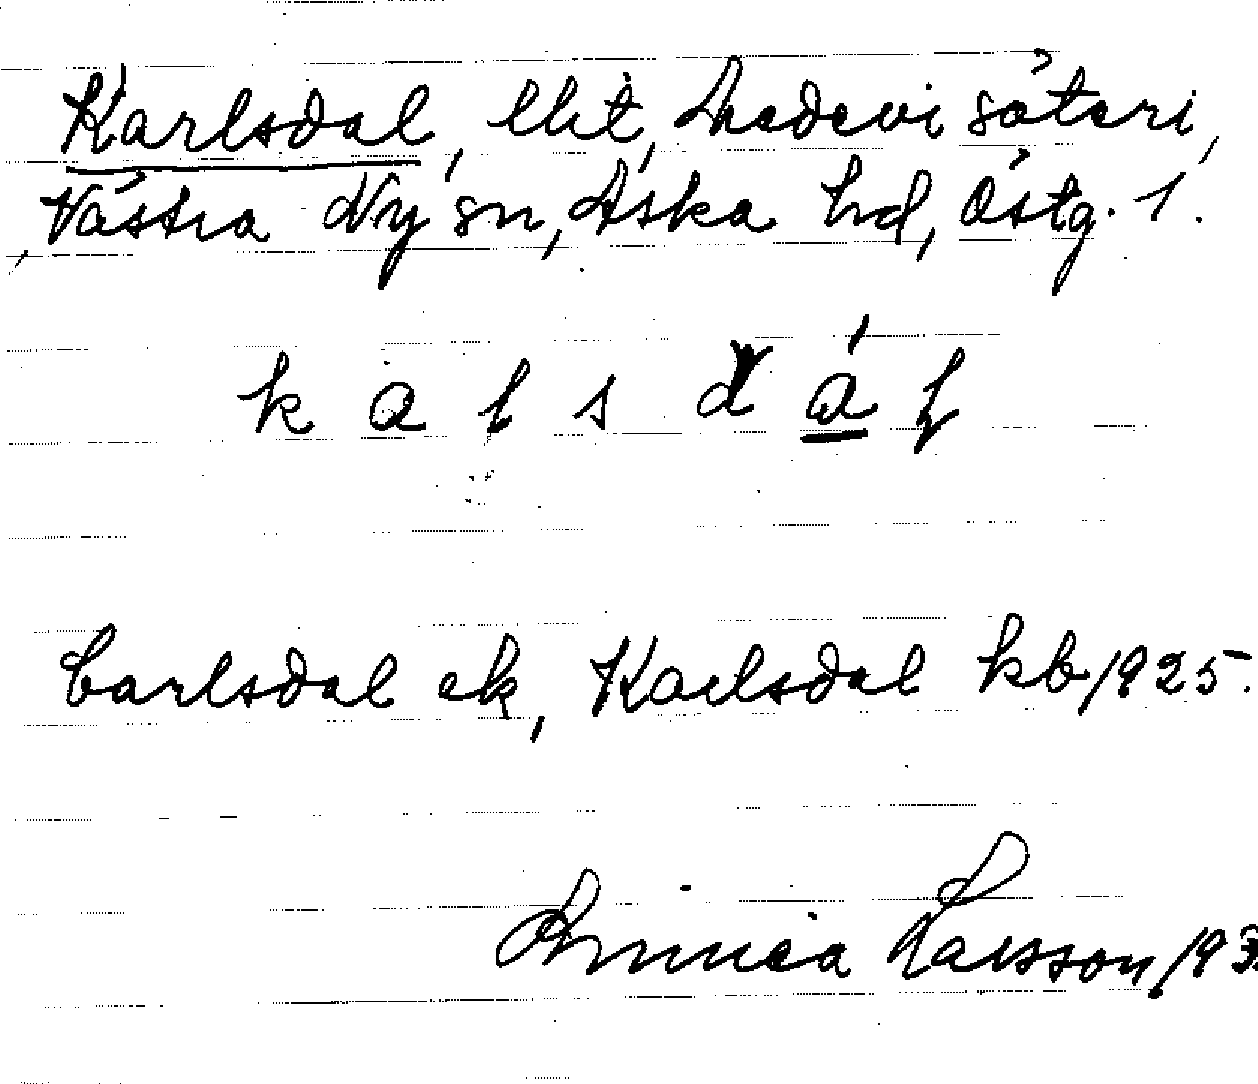 Karlsdal, lht, Medevi säteri,
Västra Ny sn, Aska hd, Östg. l.
k a l s d á l
Carlsdal ek, Karlsdal kb 1925.
Linnéa Larsson, 193